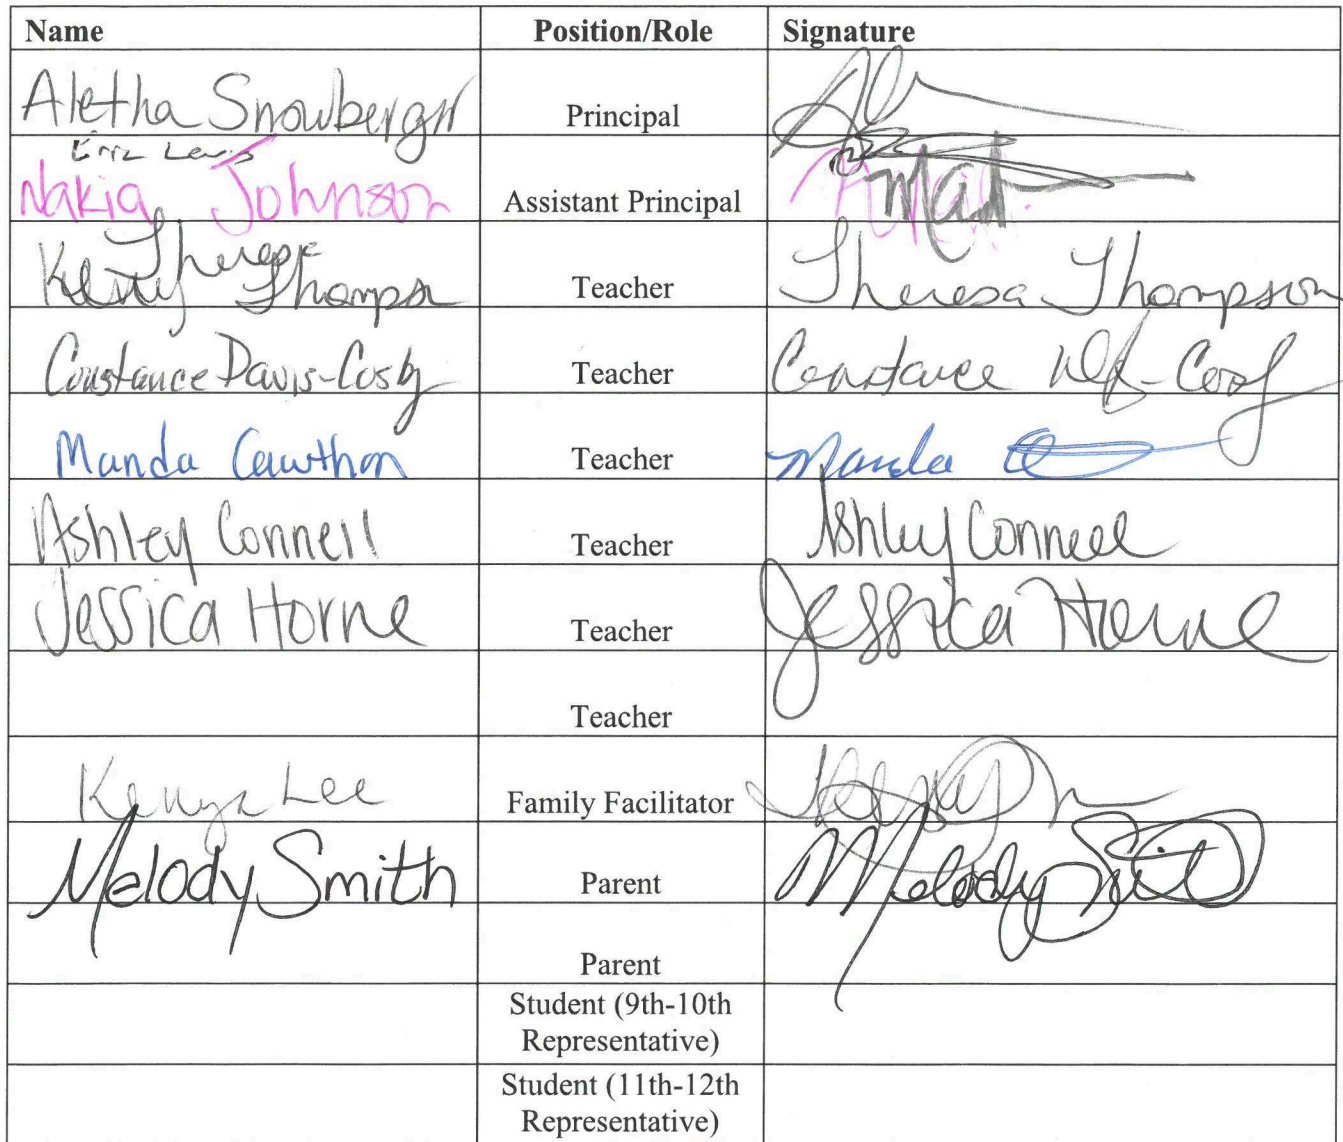 Name Position/Role Signature
Aletha Snowberger Principal
Eric Lewis
Nakia Johnson Assistant Principal
Theresa
Kelly Thompson Teacher Theresa Thompson
Constance Davis-Cosby Teacher Constance
Manda Cawthon Teacher Manda
Ashley Connell Teacher Ashley Connell
Jessica Horne Teacher Jessica Horne
Teacher
Kenya Lee Family Facilitator
Melody Smith Parent Melody Smith
Parent
Student (9th-10th
Representative)
Student (11th-12th
Representative)